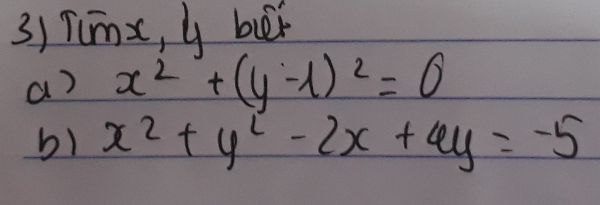 3) Tìm x, y biết
a) x² + (y - 1)² = 0
b) x² + y² - 2x + 4y = -5